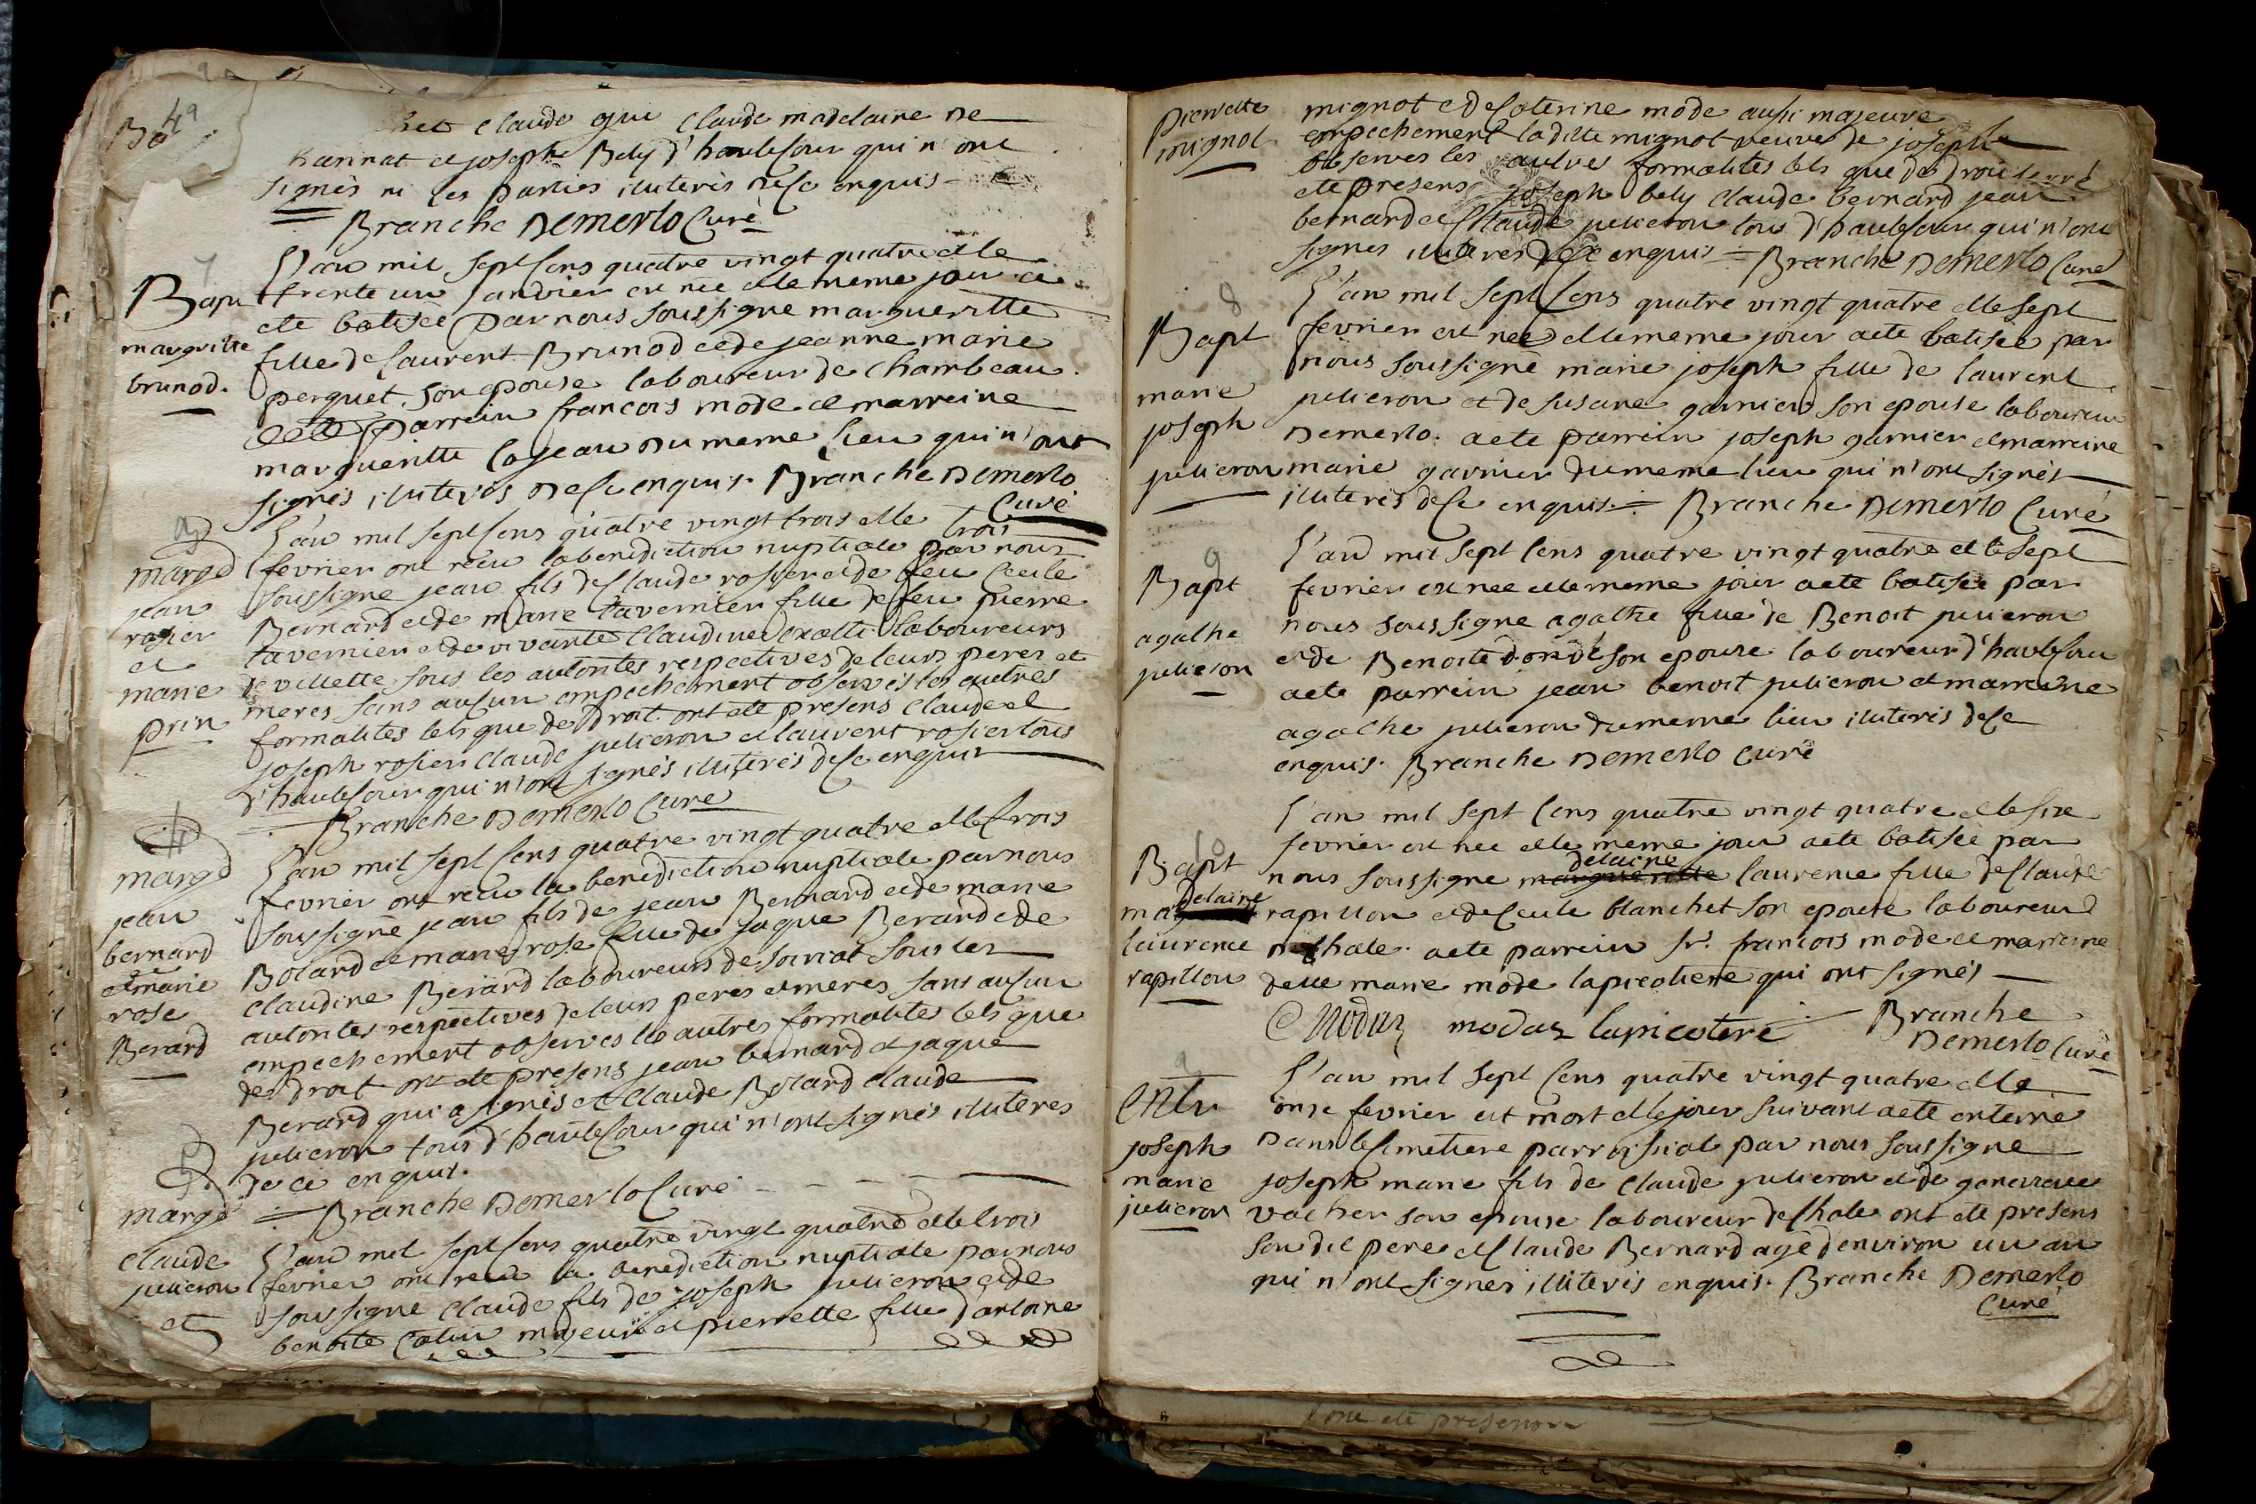 claude gui claude madelaine de
hannat et joseph Bely d'hautecour qui n'ont
signés ni les parties illiteris dece enquis
Branche Demerlo Curé
Bapt
margritte
brunod.
L'an mil sept cens quatre vingt quatre et le
trente un janvier est née et le meme jour a
eté batisée par nous soussigne margueritte
fille de laurent Brunod et de jeanne marie
perguet son epouse laboureur de Chambeau
parrein francois mode et marreine
margueritte lajeau du meme lieu qui n'ont
signés illiteres dece enquis. Branche Demerlo
Curé
marg
jean
rosier
et
marie
prin
L'an mil sept cens quatre vingt trois et le trois
fevrier ont recu la benediction nuptiale par nous
soussigne jean fils de Claude rosier et de feu Cecile
Bernard et de marie tavernier fille de feu pierre
tavernier et de vivante Claudine laboureurs
de villette sous les autorites respectives de leurs peres et
meres sans aucun empechement observés les autres
formalites tels que de droit ont ete presens Claude et
joseph rosier Claude julieron et laurent rosier tous
d'hautecour qui n'ont signés illiterés dece enquis
Branche Demerlo Curé
marg
jean
bernard
et marie
rose
Berard
L'an mil sept cens quatre vingt quatre et le trois
fevrier ont recu la benediction nuptiale par nous
soussigné jean fils de jean Bernard et de marie
Bolard et marie rose fille de jaque Berard et de
claudine Berard laboureurs de sous les
autorites respectives de leurs peres et meres sans aucun
empechement observes les autres formalites tels que
de droit ont ete presens jean bernard et jaque
Berard qui a signés et Claude Bolard claude
julieron tous d'hautecour qui n'ont signés illiteres
de ce enquis.
Branche Demerlo Curé
marg
claude
julieron
et
L'an mil sept cens quatre vingt quatre et le trois
fevrier ont recu la benediction nuptiale par nous
soussigne Claude fils de joseph julieron et de
benoite Colin majeur et pierrette fille d'antoine
Pierrette
mignot
mignot et de Caterine mode aussi majeure
empechement laditte mignot veuve de joseph
observes les autres formalites tels que de droit
ete presens joseph bely claude bernard jean
bernard et Claude julieron tous d'hautecour qui n'ont
signes illiteres dece enquis Branche Demerlo Curé
8
Bapt
marie
joseph
julieron
L'an mil sept cens quatre vingt quatre et le sept
fevrier est née et le meme jour a ete batisée par
nous soussigné marie joseph fille de laurent
julieron et de susane garnier son epouse laboureur
Demerlo. a ete parrein joseph garnier et marreine
marie garnier du meme lieu qui n'ont signés
illiteris dece enquis. Branche Demerlo Curé
9
Bapt
agathe
julieron
L'an mil sept cens quatre vingt quatre et le sept
fevrier est nee et le meme jour a ete batisée par
nous soussigne agathe fille de Benoit julieron
et de Benoite dondé son epouse laboureur d'hautecour
a ete parrein jean benoit julieron et marreine
agathe julieron du meme lieu illiteris dece
enquis. Branche Demerlo Curé
10
Bapt
madelaine
laurence
rapillon
L'an mil sept cens quatre vingt quatre et le six
fevrier est nee et le meme jour a ete batisée par
nous soussigne madelaine laurence fille de Claude
rapillon et de Cecile blanchet son epouse laboureur
a ete parrein sr. francois mode et marreine
delle marie mode lapicotiere qui ont signés
Moduz moduz lapicotere Branche
Demerlo Curé
Entr
joseph
marie
julieron
L'an mil sept cens quatre vingt quatre et le
onze fevrier est mort et le jour suivant a ete enterré
dans le cimetiere parroissial par nous soussigne
joseph marie fils de claude julieron et de genevieve
vacher son epouse laboureur de Chale ont ete presens
son dit pere et Claude Bernard agé d'environ un an
qui n'ont signés illiteris enquis. Branche Demerlo
Curé
ont ete presens